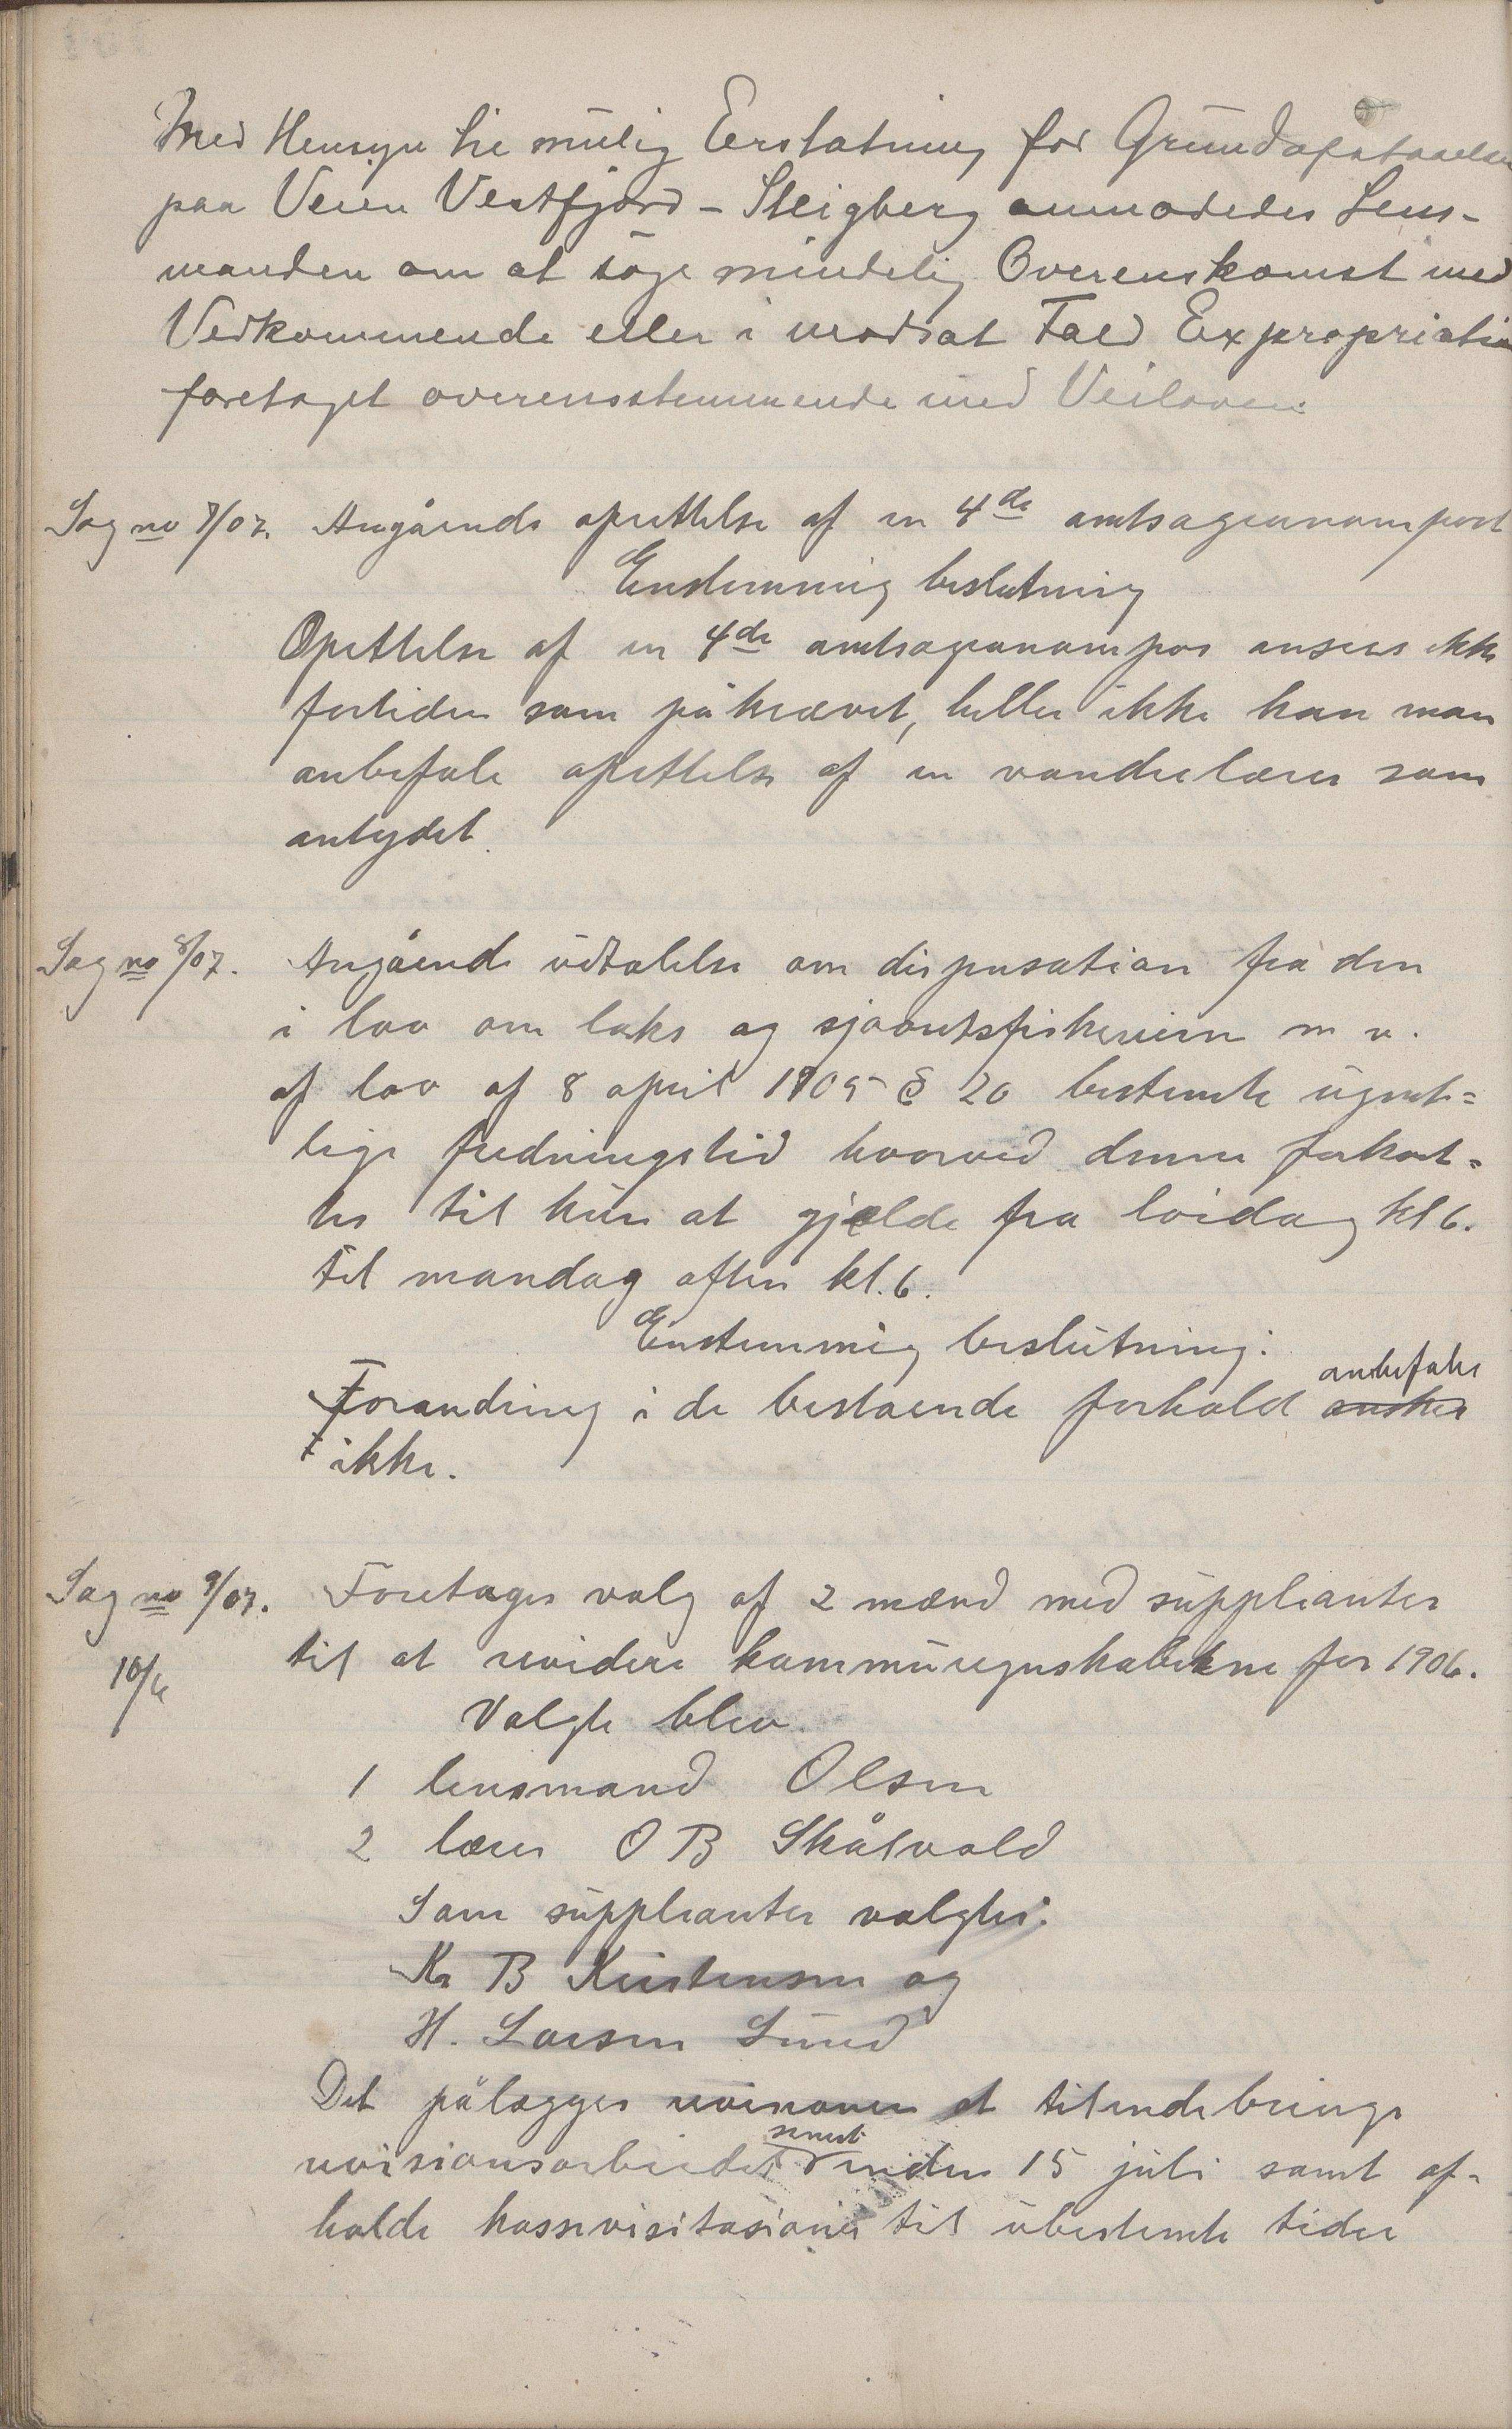 Med Hensyn til mulig Erstatning for Grundafstaaelse
paa Veien Vestfjord - Sleigberg anmodedes Lens-
manden om at søge mindelig Overenskomst med
Vedkommende eller i modsat Fald Expropriation
foretaget overensstemmende med Veiloven.
Sag no 7/07. Angående oprettelse af en 4de amtsagronompost
Enstemmig beslutning
Oprettelse af en 4de amtsagronompos ansees ikke
fortiden som påkrævet, heller ikke kan man
anbefale oprettelse af en vandrelærer som
antydet.
Sag no 8/07. Angående udtalelse om dispensation fra den
i lov om laks og sjøørretsfiskerierne m v.
af lov af 8 april 1905 § 20 bestemte ugent=
lige fredningstid hvorved denne forkort=
tes til kun at gjælde fra lørdag kl 6.
til mandag aften kl. 6.
Enstemmig beslutning:
Forandring i de bestaaende forhold ønskes anbefales
ikke.
Sag no 9/07. Foretages valg af 2 mænd med suppleanter
10/6 til at revidere kommuneregnskaberne for 1906.
Valgte blev
1 lensmand Olsen
2 lærer O B Skålvold
Som suppleanter valgtes:
Kr B Kristensen og
H. Larsen Sund
Det pålægges revisionen at tilendebringe
revisionsarbeidet senest inden 15 juli samt af-
holde kassevisitasioner til ubestemte tider